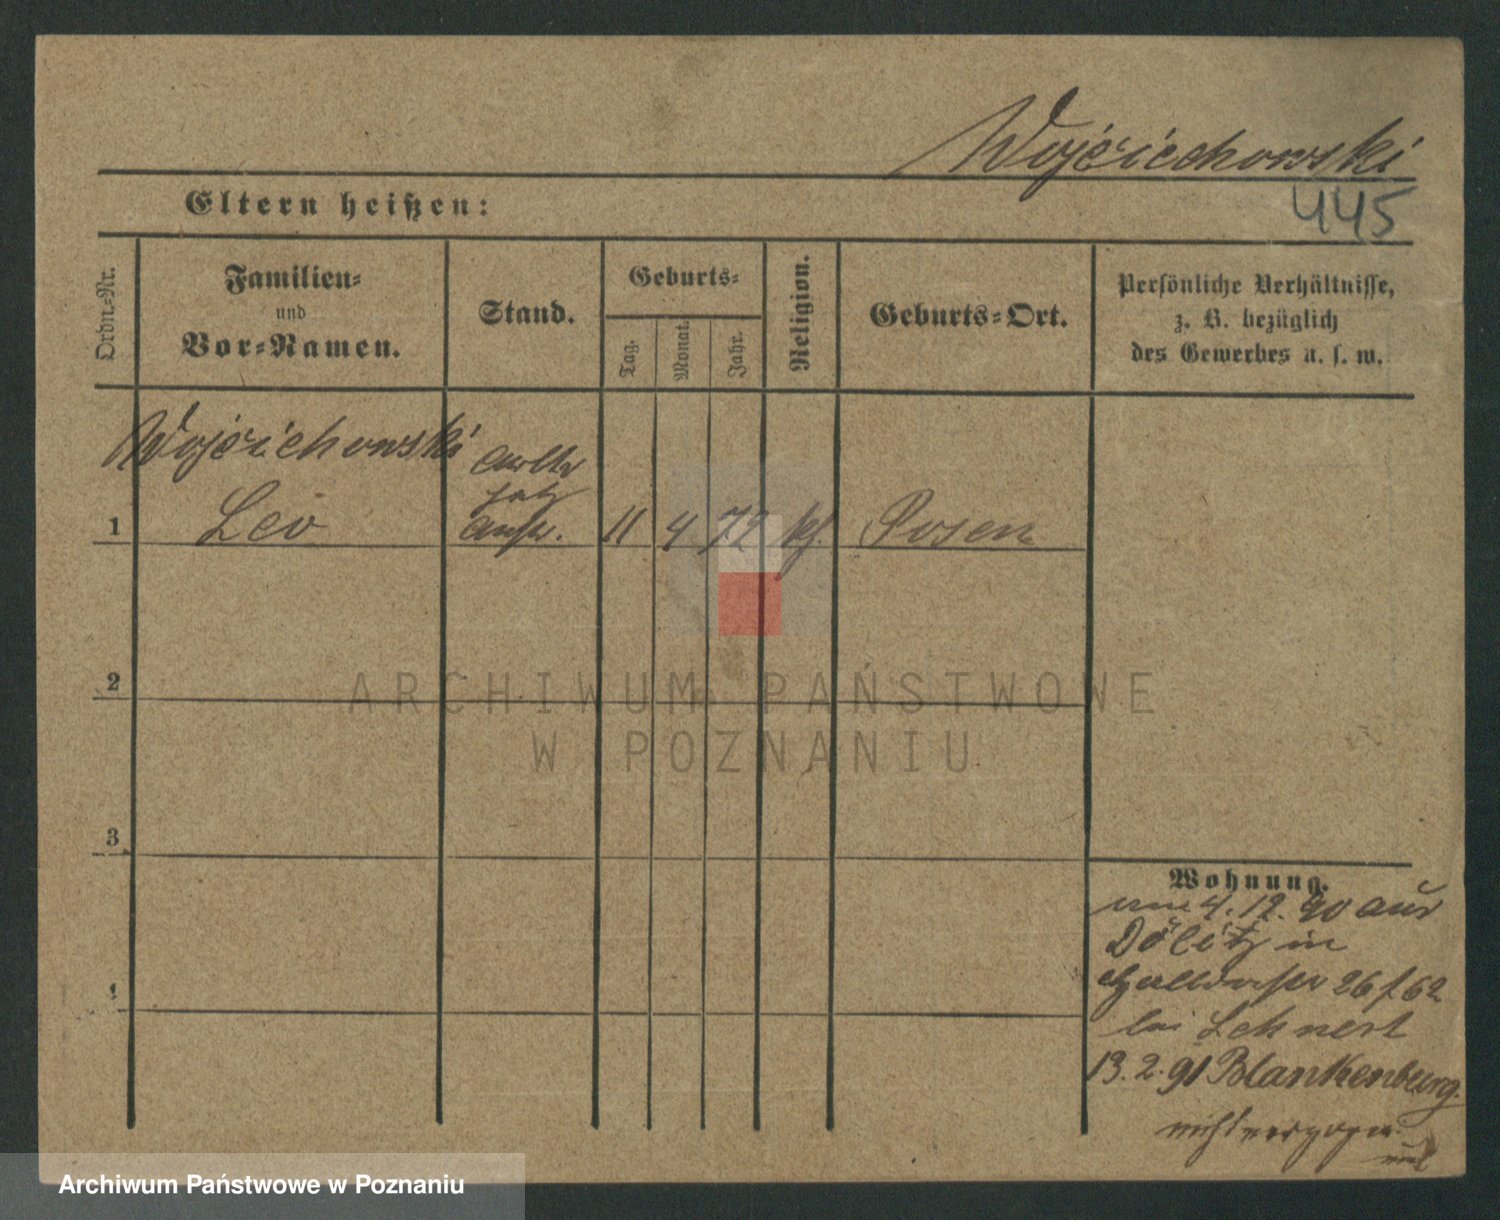 Wojciechowski
445
Eltern heißen:
Ordn.-Nr.
Familien-
und
Vor-Namen.
Stand.
Geburts-
Tag.
Monat.
Jahr.
Religion.
Geburts-Ort.
Persönliche Verhältnisse,
z. B. bezüglich
des Gewerbes u. s. w.
Wojciechowski
1 Leo 11 4 72 Posen
2
3
4
ARCHIWUM PAŃSTWOWE
W POZNANIU
Wohnung.
4.12.90 aus
Dölitz in
26/62
bei Lehnert
13.2.91 Blankenburg.
Archiwum Państwowe w Poznaniu